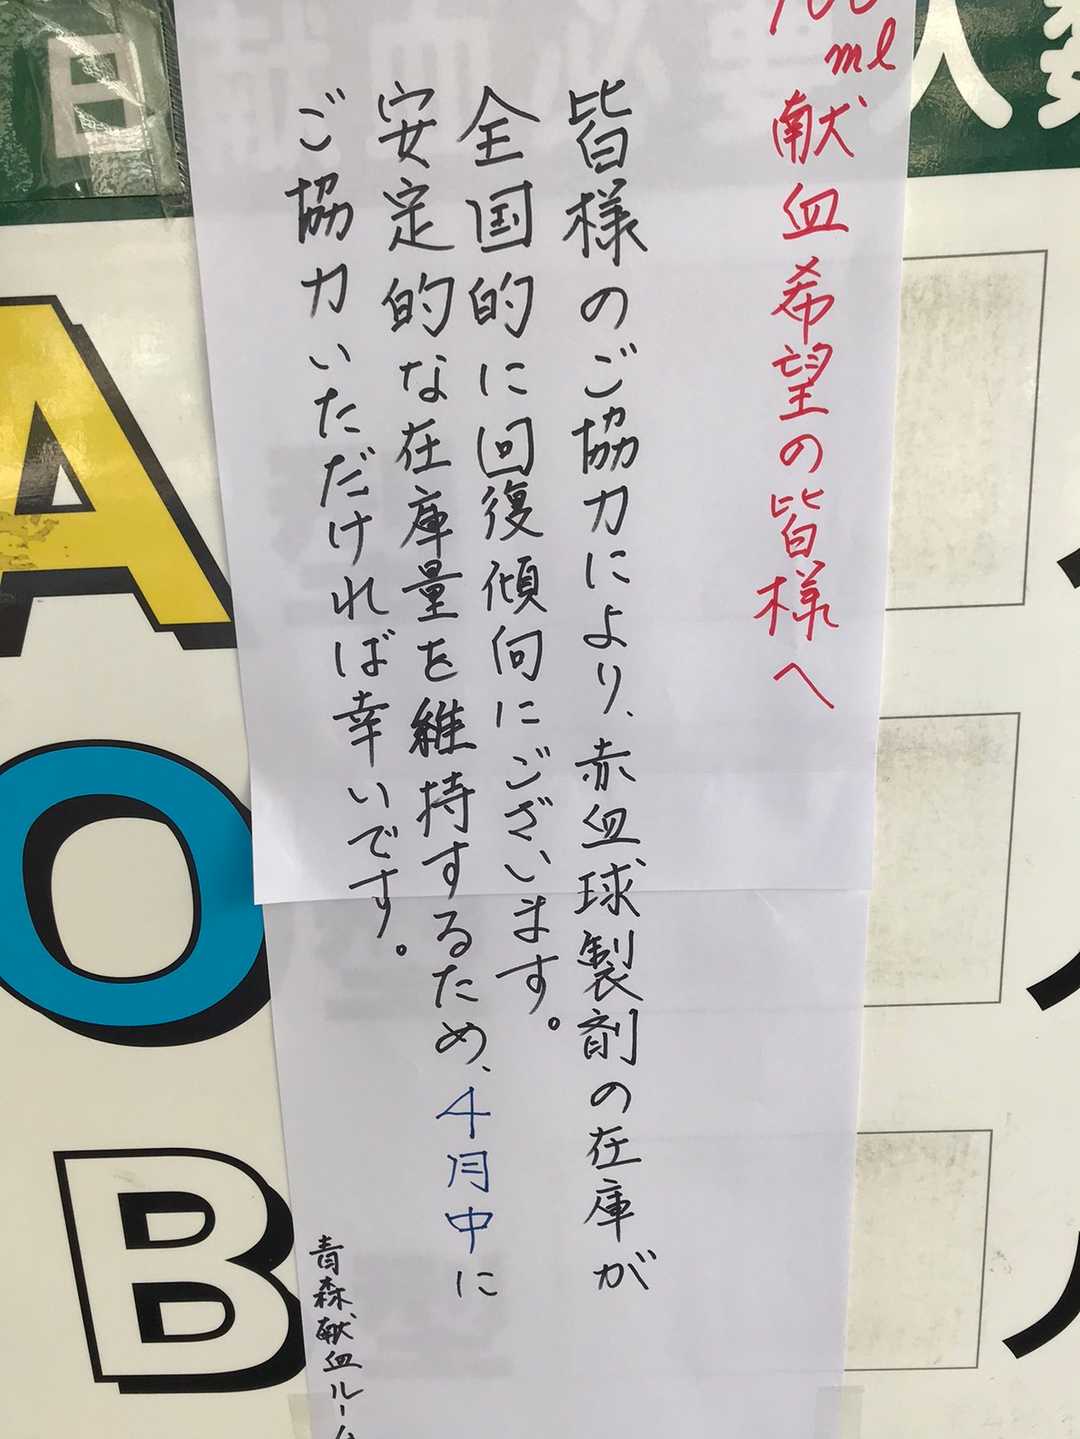 ml献血希望の皆様へ
皆様のご協力により、赤血球製剤の在庫が
全国的に回復傾向にございます。
安定的な在庫量を維持するため、4月中に
ご協力いただければ幸いです。
青森献血ルーム
日
A
O
B